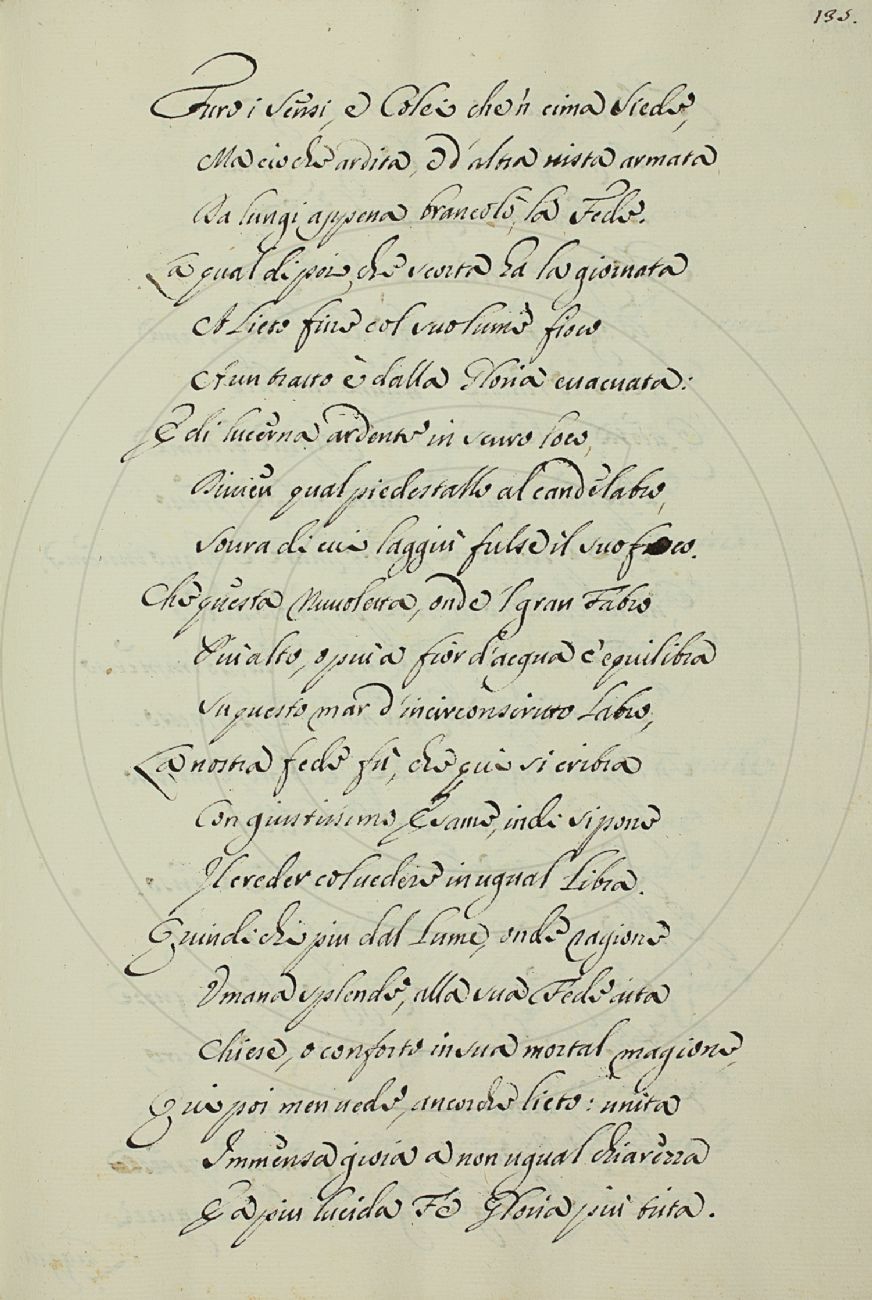 135.
Furo i Sensi, e Colei che 'n cima siede,
Ma ciò che ardita, e d'altra vista armata
Da lungi appena brancolò, la Fede.
La qual di poi, che scorta ha la giornata
A lieto fine col suo lume fioco
A un tratto è dalla Gloria evacuata:
E di lucerna ardente in scuro loco,
Divien qual piedestallo al candelabro,
Sovra di cui laggiù fulse il suo foco.
Che questa Nuvoletta, onde 'l gran Fabro
Più alto, o più a fior d'acqua c'equilibra
Su questo mar d'incirconscritto Labro,
La nostra fede fù, che qui si cribra
Con giustissimo Esame, indi si pone
Il creder col vedere in ugual Libra.
Quindi chi piu dal Lume, onde ragione
Umana splende, alla sua Fede aita
Chiese, o conforto in sua mortal magione,
Qui poi men vede, ancorche lieto: unita
Immensa gioia a non ugual chiarezza
E a piu lucida Fe Gloria più